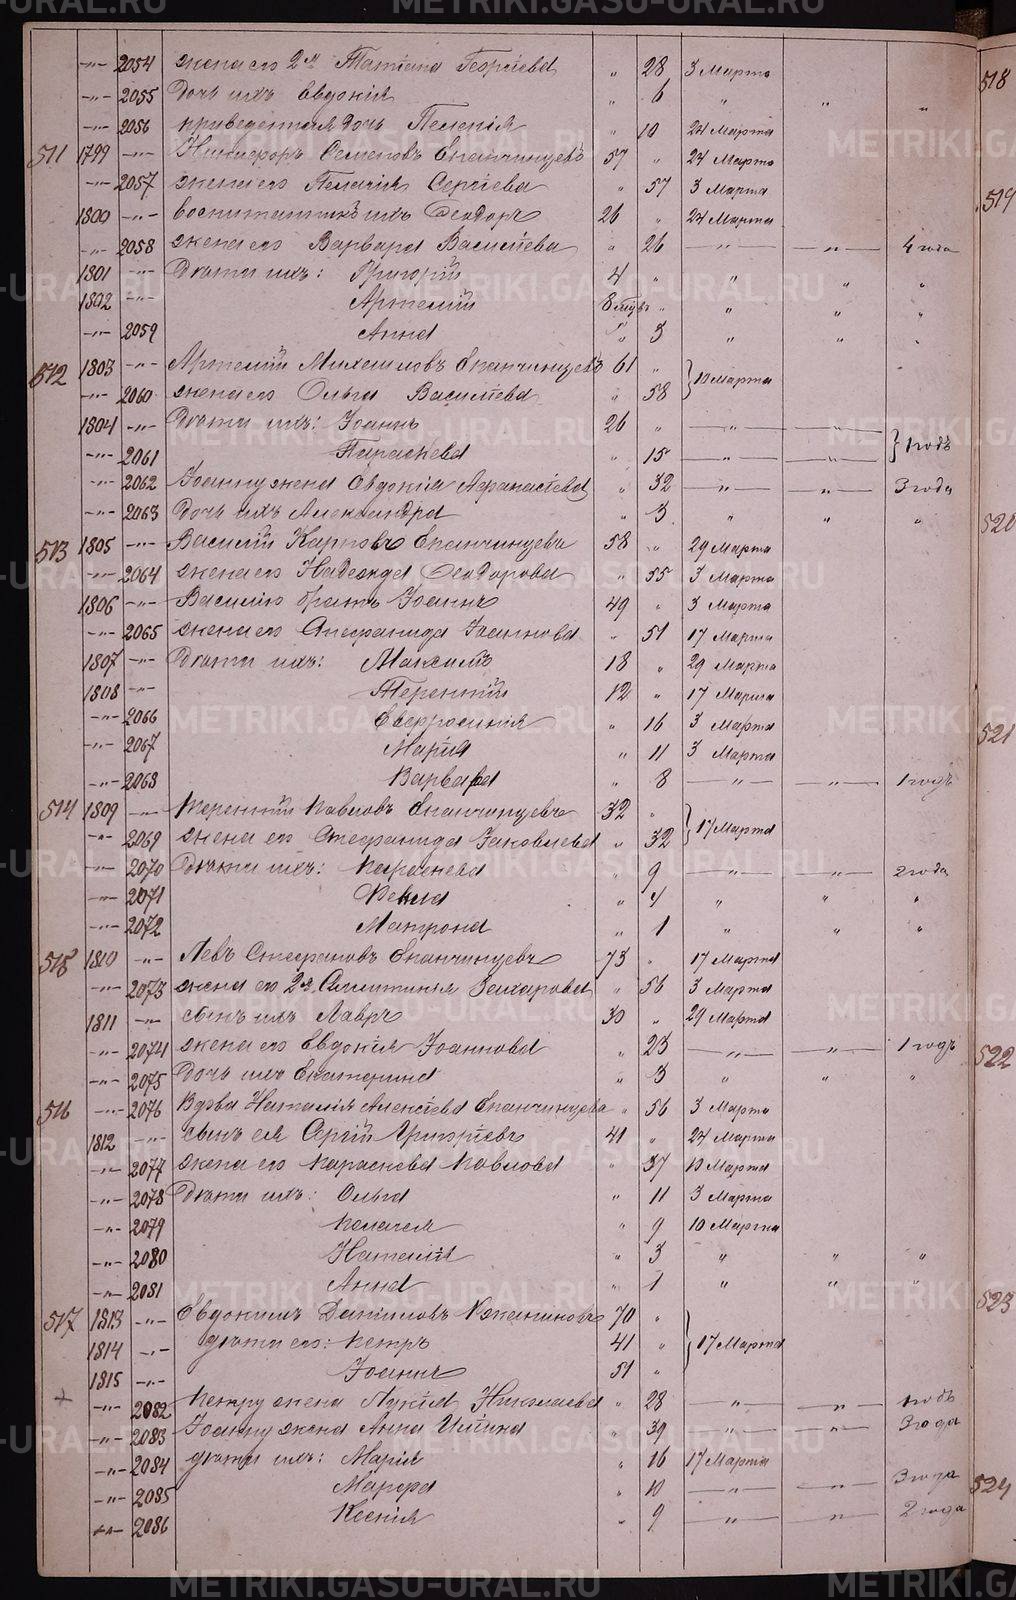 METRIKI.GASO-URAL.RU
-"- 2054 жена его 2я Татіана Георгіева " 28 3 Марта
-"- 2055 Дочь ихъ Евдокія " 6 " " "
-"- 2056 приведенная дочь Пелагія " 10 24 Марта
511 1799 -"- Никифоръ Семеновъ Епанчинцевъ 57 " 24 Марта
-"- 2057 жена его Пелагія Сергіева " 57 3 Марта
1800 -"- воспитанникъ ихъ Ѳеодоръ 26 " 24 Марта
-"- 2058 жена его Варвара Василіева " 26 -"- -"- 4 года
1801 -"- Дѣти ихъ: Григорій 4 " " " "
1802 -"- Артемій " " " "
-"- 2059 Анна " 3 " " "
512 1803 -"- Артемій Михаиловъ Епанчинцевъ 61 " } 10 Марта
-"- 2060 жена его Ольга Василіева " 58
1804 -"- Дѣти ихъ: Іоаннъ 26 " -"- -"- } 1 годъ
-"- 2061 Параскева " 15 -"- -"-
-"- 2062 Іоанну жена Евдокія Аѳанасіева " 32 -"- -"- 3 года
-"- 2063 Дочь ихъ Александра " 3 " " "
513 1805 -"- Василій Карповъ Епанчинцевъ 58 " 29 Марта
-"- 2064 жена его Надежда Ѳеодорова " 55 3 Марта
1806 -"- Василію братъ Іоаннъ 49 " 3 Марта
-"- 2065 жена его Стефанида Іоаннова " 51 17 Марта
1807 -"- Дѣти ихъ: Максимъ 18 " 29 Марта
1808 -"- Терентій 12 " 17 Марта
-"- 2066 Евфросинія " 16 3 Марта
-"- 2067 Марія " 11 3 Марта
-"- 2068 Варвара " 8 -"- -"- 1 годъ
514 1809 -"- Терентій Павловъ Епанчинцевъ 32 " } 17 Марта
-"- 2069 жена его Стефанида Іаковлева " 32
-"- 2070 Дѣти ихъ: Параскева " 9 -"- -"- 2 года
-"- 2071 Ѳекла " 4 " " "
-"- 2072 Матрона " 1 " " "
515 1810 -"- Левъ Стефановъ Епанчинцевъ 73 " 17 Марта
-"- 2073 жена его 2я Захарова " 56 3 Марта
1811 -"- сынъ ихъ Лавръ 30 " 29 Марта
-"- 2074 жена его Евдокія Іоаннова " 23 -"- -"- 1 годъ
-"- 2075 Дочь ихъ Екатерина " 3 " " "
516 -"- 2076 Вдова Наталія Алексіева Епанчинцева " 56 3 Марта
1812 -"- сынъ ея Сергій Григоріевъ 41 " 24 Марта
-"- 2077 жена его Параскева Павлова " 37 10 Марта
-"- 2078 Дѣти ихъ: Ольга " 11 3 Марта
-"- 2079 Пелагея " 9 10 Марта
-"- 2080 Наталія " 3 " " "
-"- 2081 Анна " 1 " " "
517 1813 -"- Евдокимъ Даніиловъ 70 " } 17 Марта
1814 -"- дѣти его: Петръ 41 "
1815 -"- Іоаннъ 51 "
-"- 2082 Петру жена Лукія Николаева " 28 -"- -"- 1 годъ
-"- 2083 Іоанну жена Анна Иліина " 39 -"- -"- 3 года
-"- 2084 дѣти ихъ: Марія " 16 17 Марта
-"- 2085 Марѳа " 10 -"- -"- 3 года
-"- 2086 Ксенія " 9 -"- -"- 2 года
518
519
520
521
522
523
524